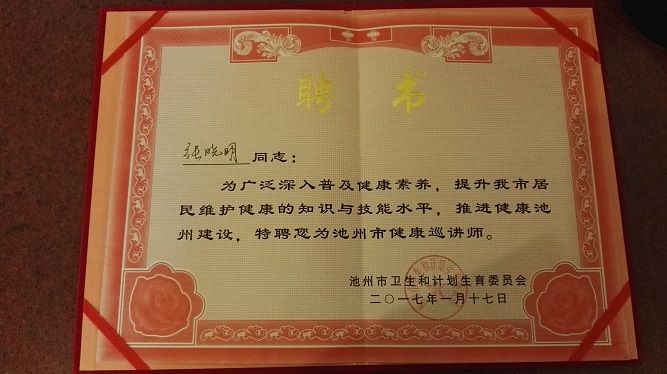 聘书
张晓明 同志：
为广泛深入普及健康素养，提升我市居
民维护健康的知识与技能水平，推进健康池
州建设，特聘您为池州市健康巡讲师。
池州市卫生和计划生育委员会
二〇一七年一月十七日